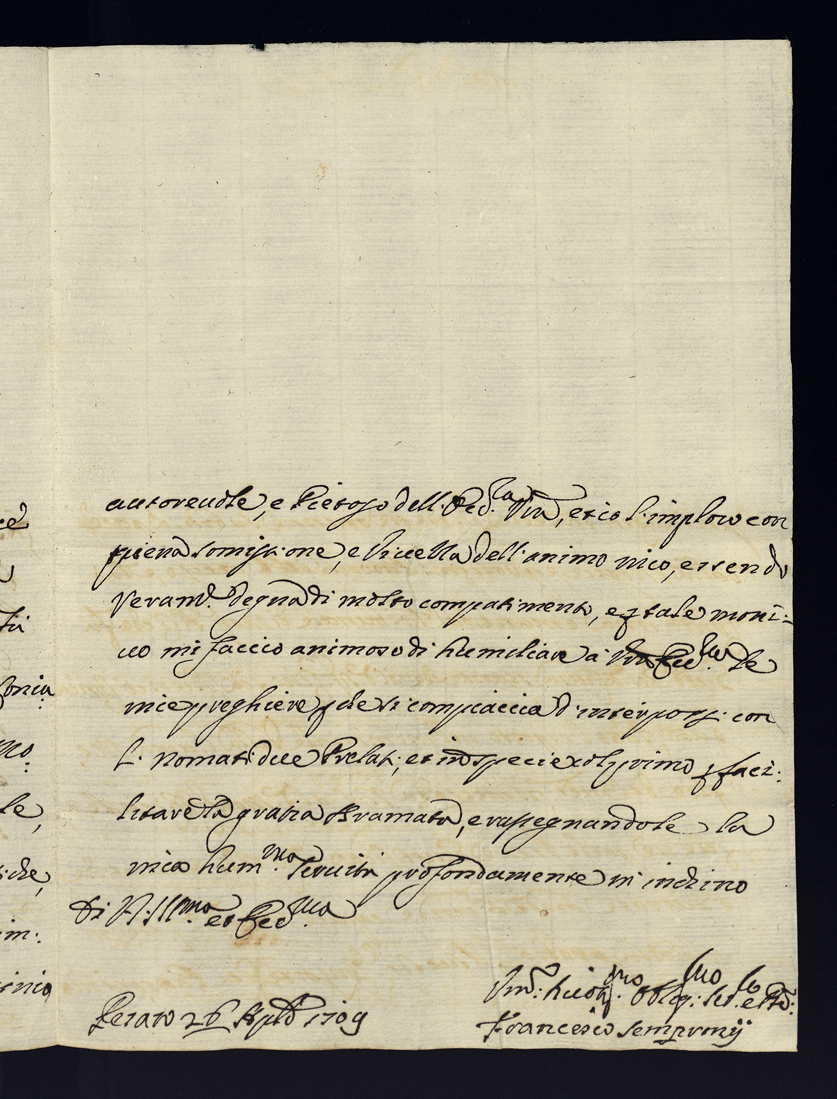 ce
autoreuole, e Pietoso dell'Ecc.za Vra, et io l'imploro con
piena somissione, e liuella dell'animo mio, essendo
Veram.e degna di molto compatimento, e p tale moti=
uo mi faccio animoso di humiliare à Vra Ecc.za le
mie preghiere, p che si compiaccia d'interporsi con
l. nomati due Prelati, et in specie col primo p faci:
litare la gratia bramata, e rassegnandole la
mia hum.ma seruitù profondamente m'inchino
Di V. Ill.ma et Ecc.za
le,
im:
Pesaro 26 1709
Hum: obblig:
Francesco Sempronij